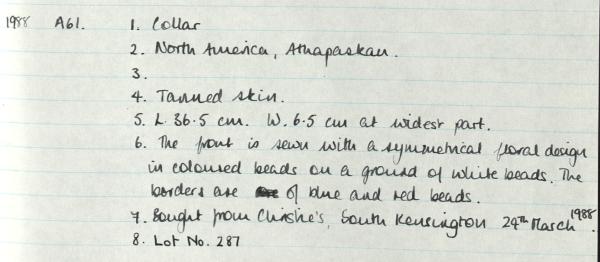 1988 A61. 1. Collar
2. North America, Athapaskan.
3.
4. Tanned skin.
5. L. 36.5 cm. W. 6.5 cm at widest part.
6. The front is sewn with a symmetrical floral design
in coloured beads on a ground of white beads. The
borders are of blue and red beads.
7. Bought from Christie's, South Kensington 24th March 1988.
8. Lot No. 287